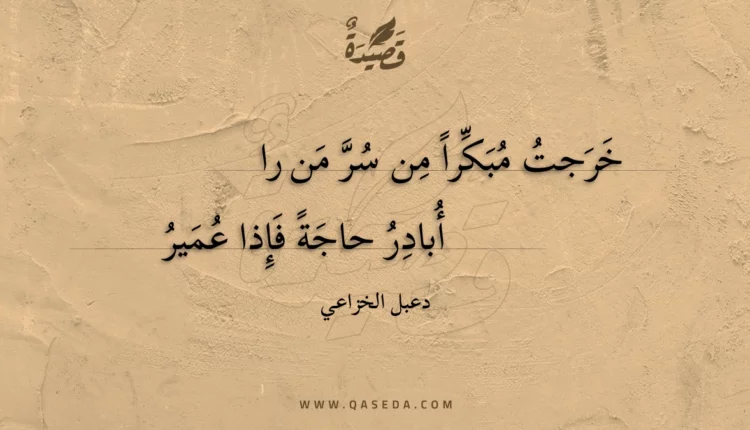 قَصِيْدَةٌ
خَرَجتُ مُبَكِّراً مِن سُرَّ مَن را
أُبادِرُ حاجَةً فَإِذا عُمَيرُ
دعبل الخزاعي
WWW.QASEDA.COM